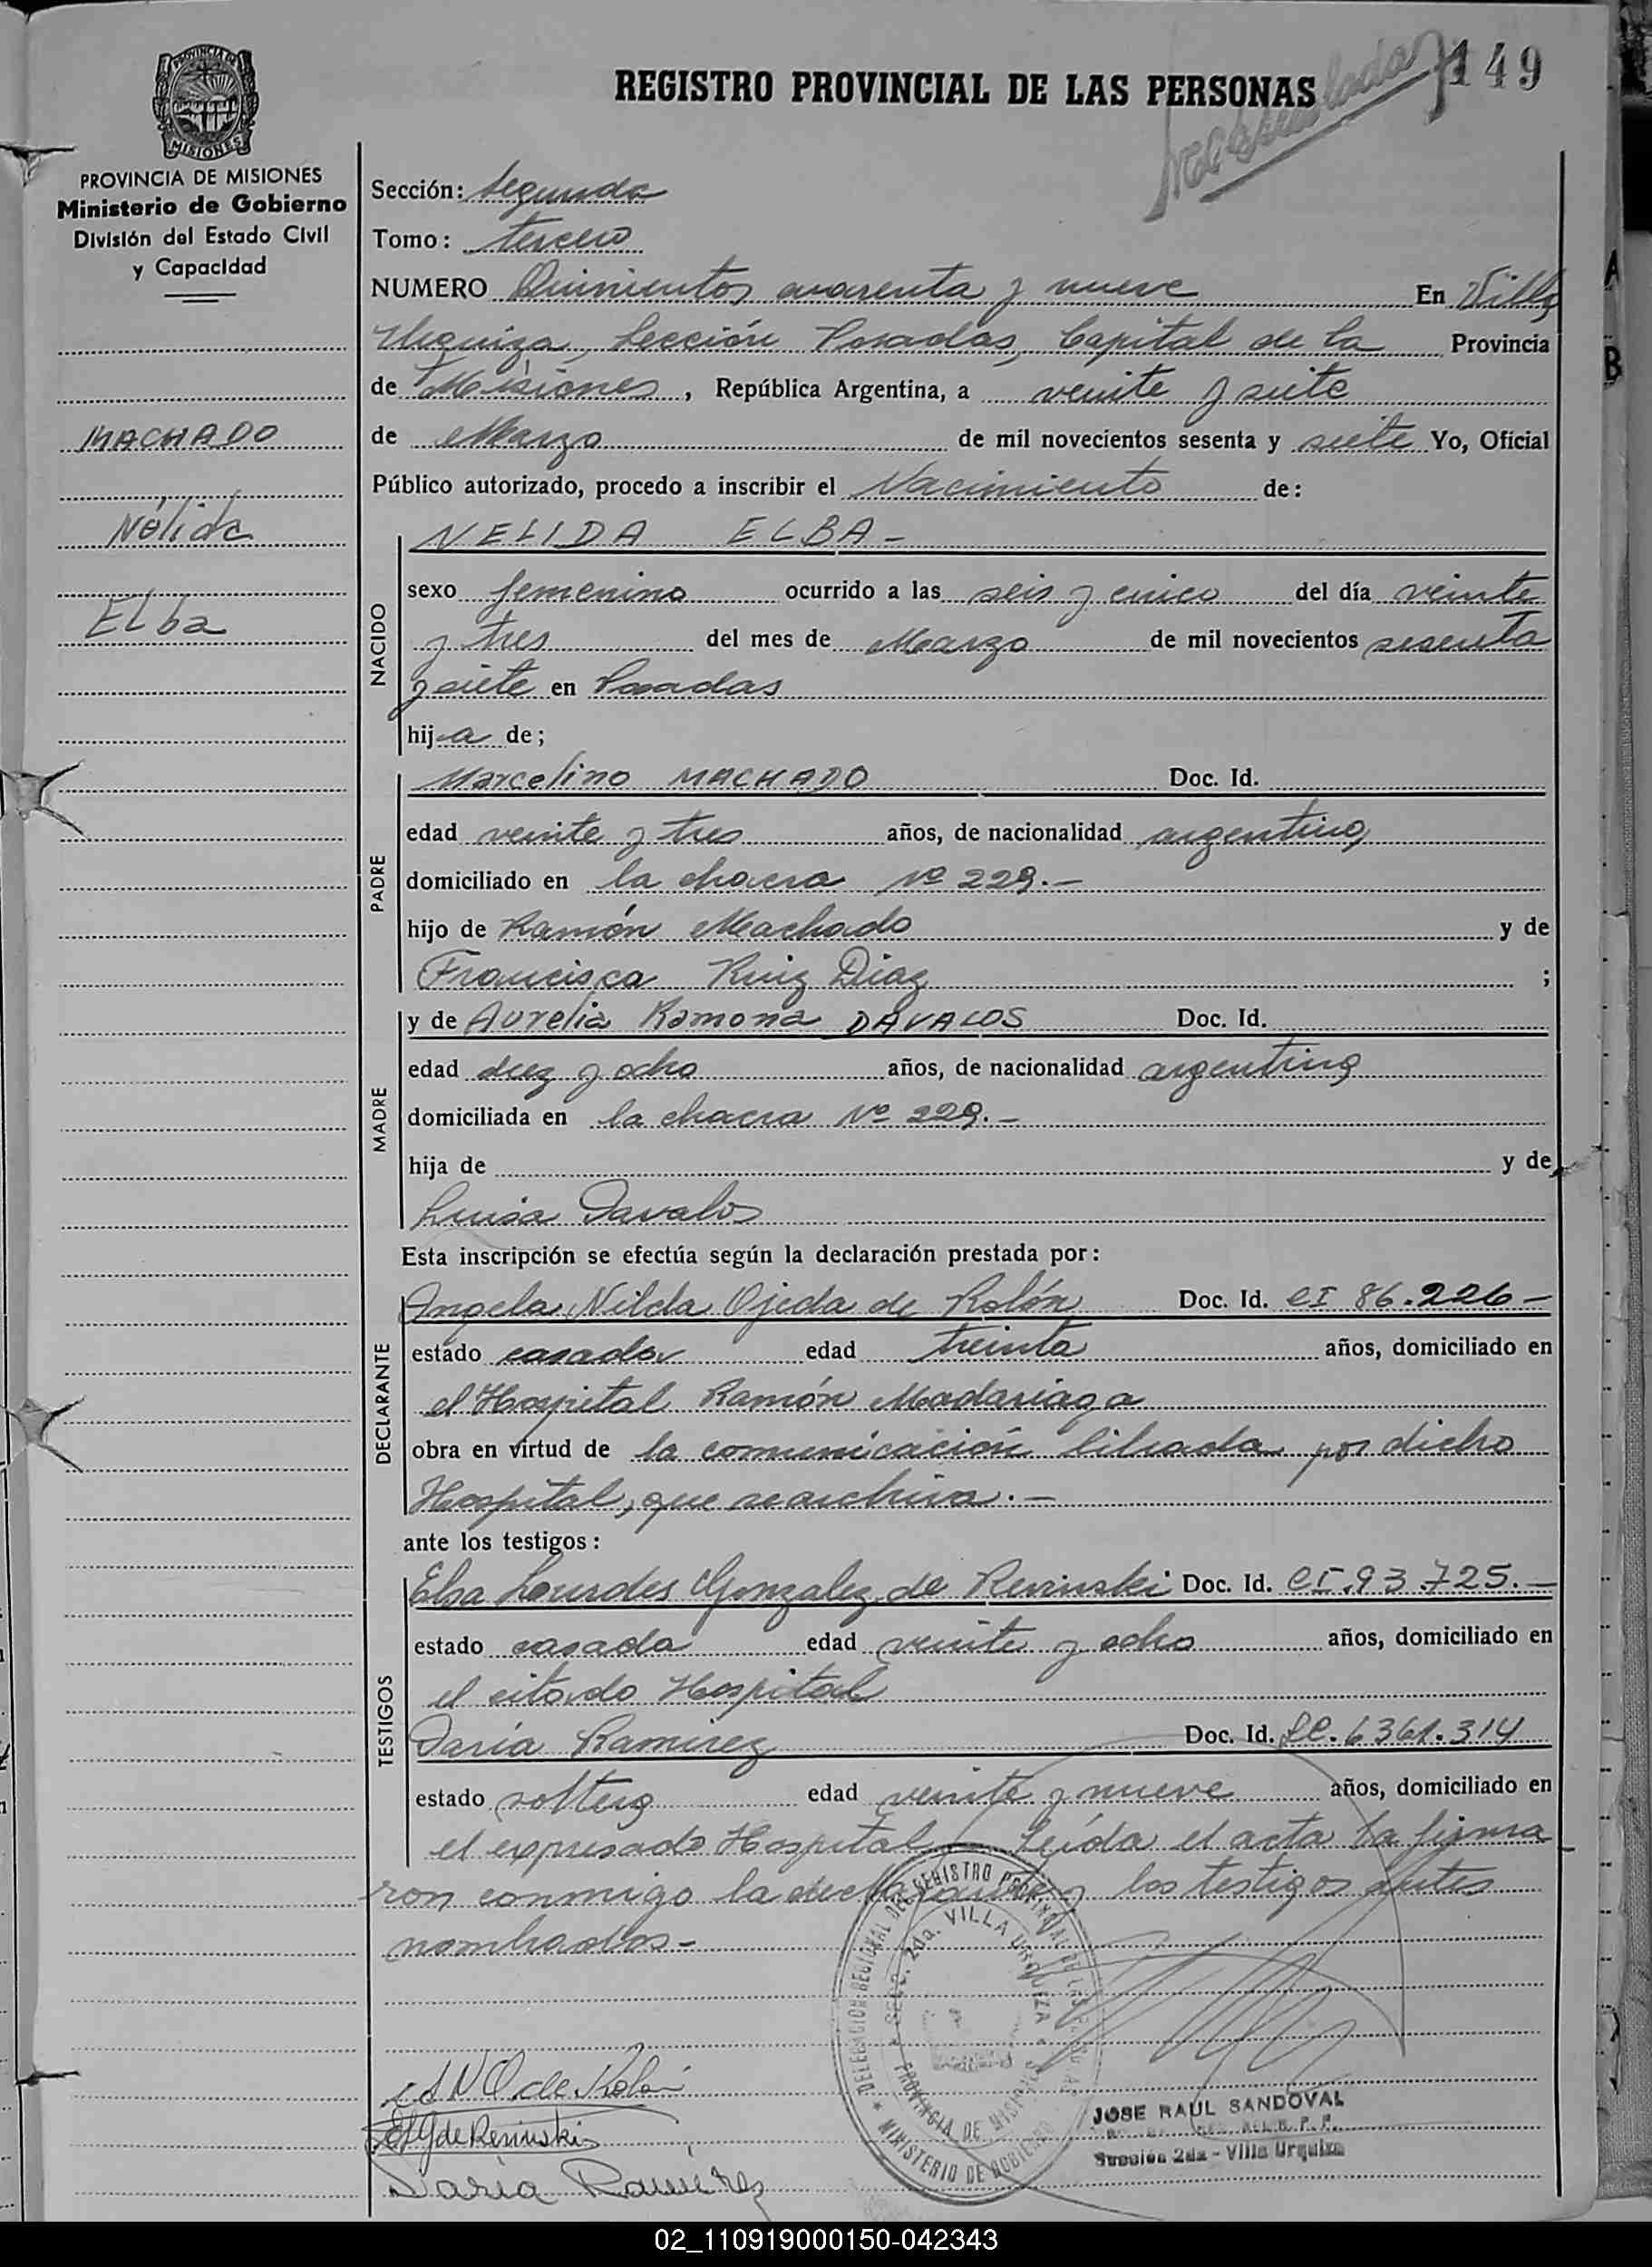 149
REGISTRO PROVINCIAL DE LAS PERSONAS
PROVINCIA DE
MISIONES
PROVINCIA DE MISIONES
Ministerio de Gobierno
División del Estado Civil
y Capacidad
MACHADO
Nélida
Elba
Sección: Segunda
Tomo: tercero
NUMERO Quinientos cuarenta y nueve En Villa
Urquiza, Sección Posadas, Capital de la Provincia
de Misiones, República Argentina, a veinte y siete
de Marzo de mil novecientos sesenta y siete Yo, Oficial
Público autorizado, procedo a inscribir el Nacimiento de:
NACIDO
NELIDA ELBA -
sexo femenino ocurrido a las seis y cinco del día veinte
y tres del mes de Marzo de mil novecientos sesenta
y siete en Posadas
hija de;
PADRE
Marcelino MACHADO Doc. Id.
edad veinte y tres años, de nacionalidad argentino,
domiciliado en la chacra Nº 229.-
hijo de Ramón Machado y de
Francisca Ruiz Diaz ;
MADRE
y de Aurelia Ramona DAVALOS Doc. Id.
edad diez y ocho años, de nacionalidad argentina
domiciliada en la chacra Nº 229.-
hija de y de
Luisa Davalos
Esta inscripción se efectúa según la declaración prestada por:
DECLARANTE
Angela Nilda Ojeda de Rolón Doc. Id. CI 86.226-
estado casada edad treinta años, domiciliado en
el Hospital Ramón Madariaga
obra en virtud de la comunicación librada por dicho
Hospital, que se archiva.-
ante los testigos:
TESTIGOS
Elsa Lourdes Gonzalez de Revinski Doc. Id. CI.93.725.-
estado casada edad veinte y ocho años, domiciliado en
el citado Hospital
Daria Ramirez Doc. Id. LC.6361.314
estado soltera edad veinte y nueve años, domiciliado en
el expresado Hospital Leída el acta la firma
ron conmigo la declarante y los testigos antes
nombrados-
DELEGACION REGIONAL DEL REGISTRO PROVINCIAL DE LAS PERSONAS
SECC. 2da. VILLA URQUIZA
PROVINCIA DE MISIONES
MINISTERIO DE GOBIERNO
A N O de Rolón
E L G de Revinski
Daria Ramirez
JOSE RAUL SANDOVAL
Sección 2da - Villa Urquiza
02_110919000150-042343